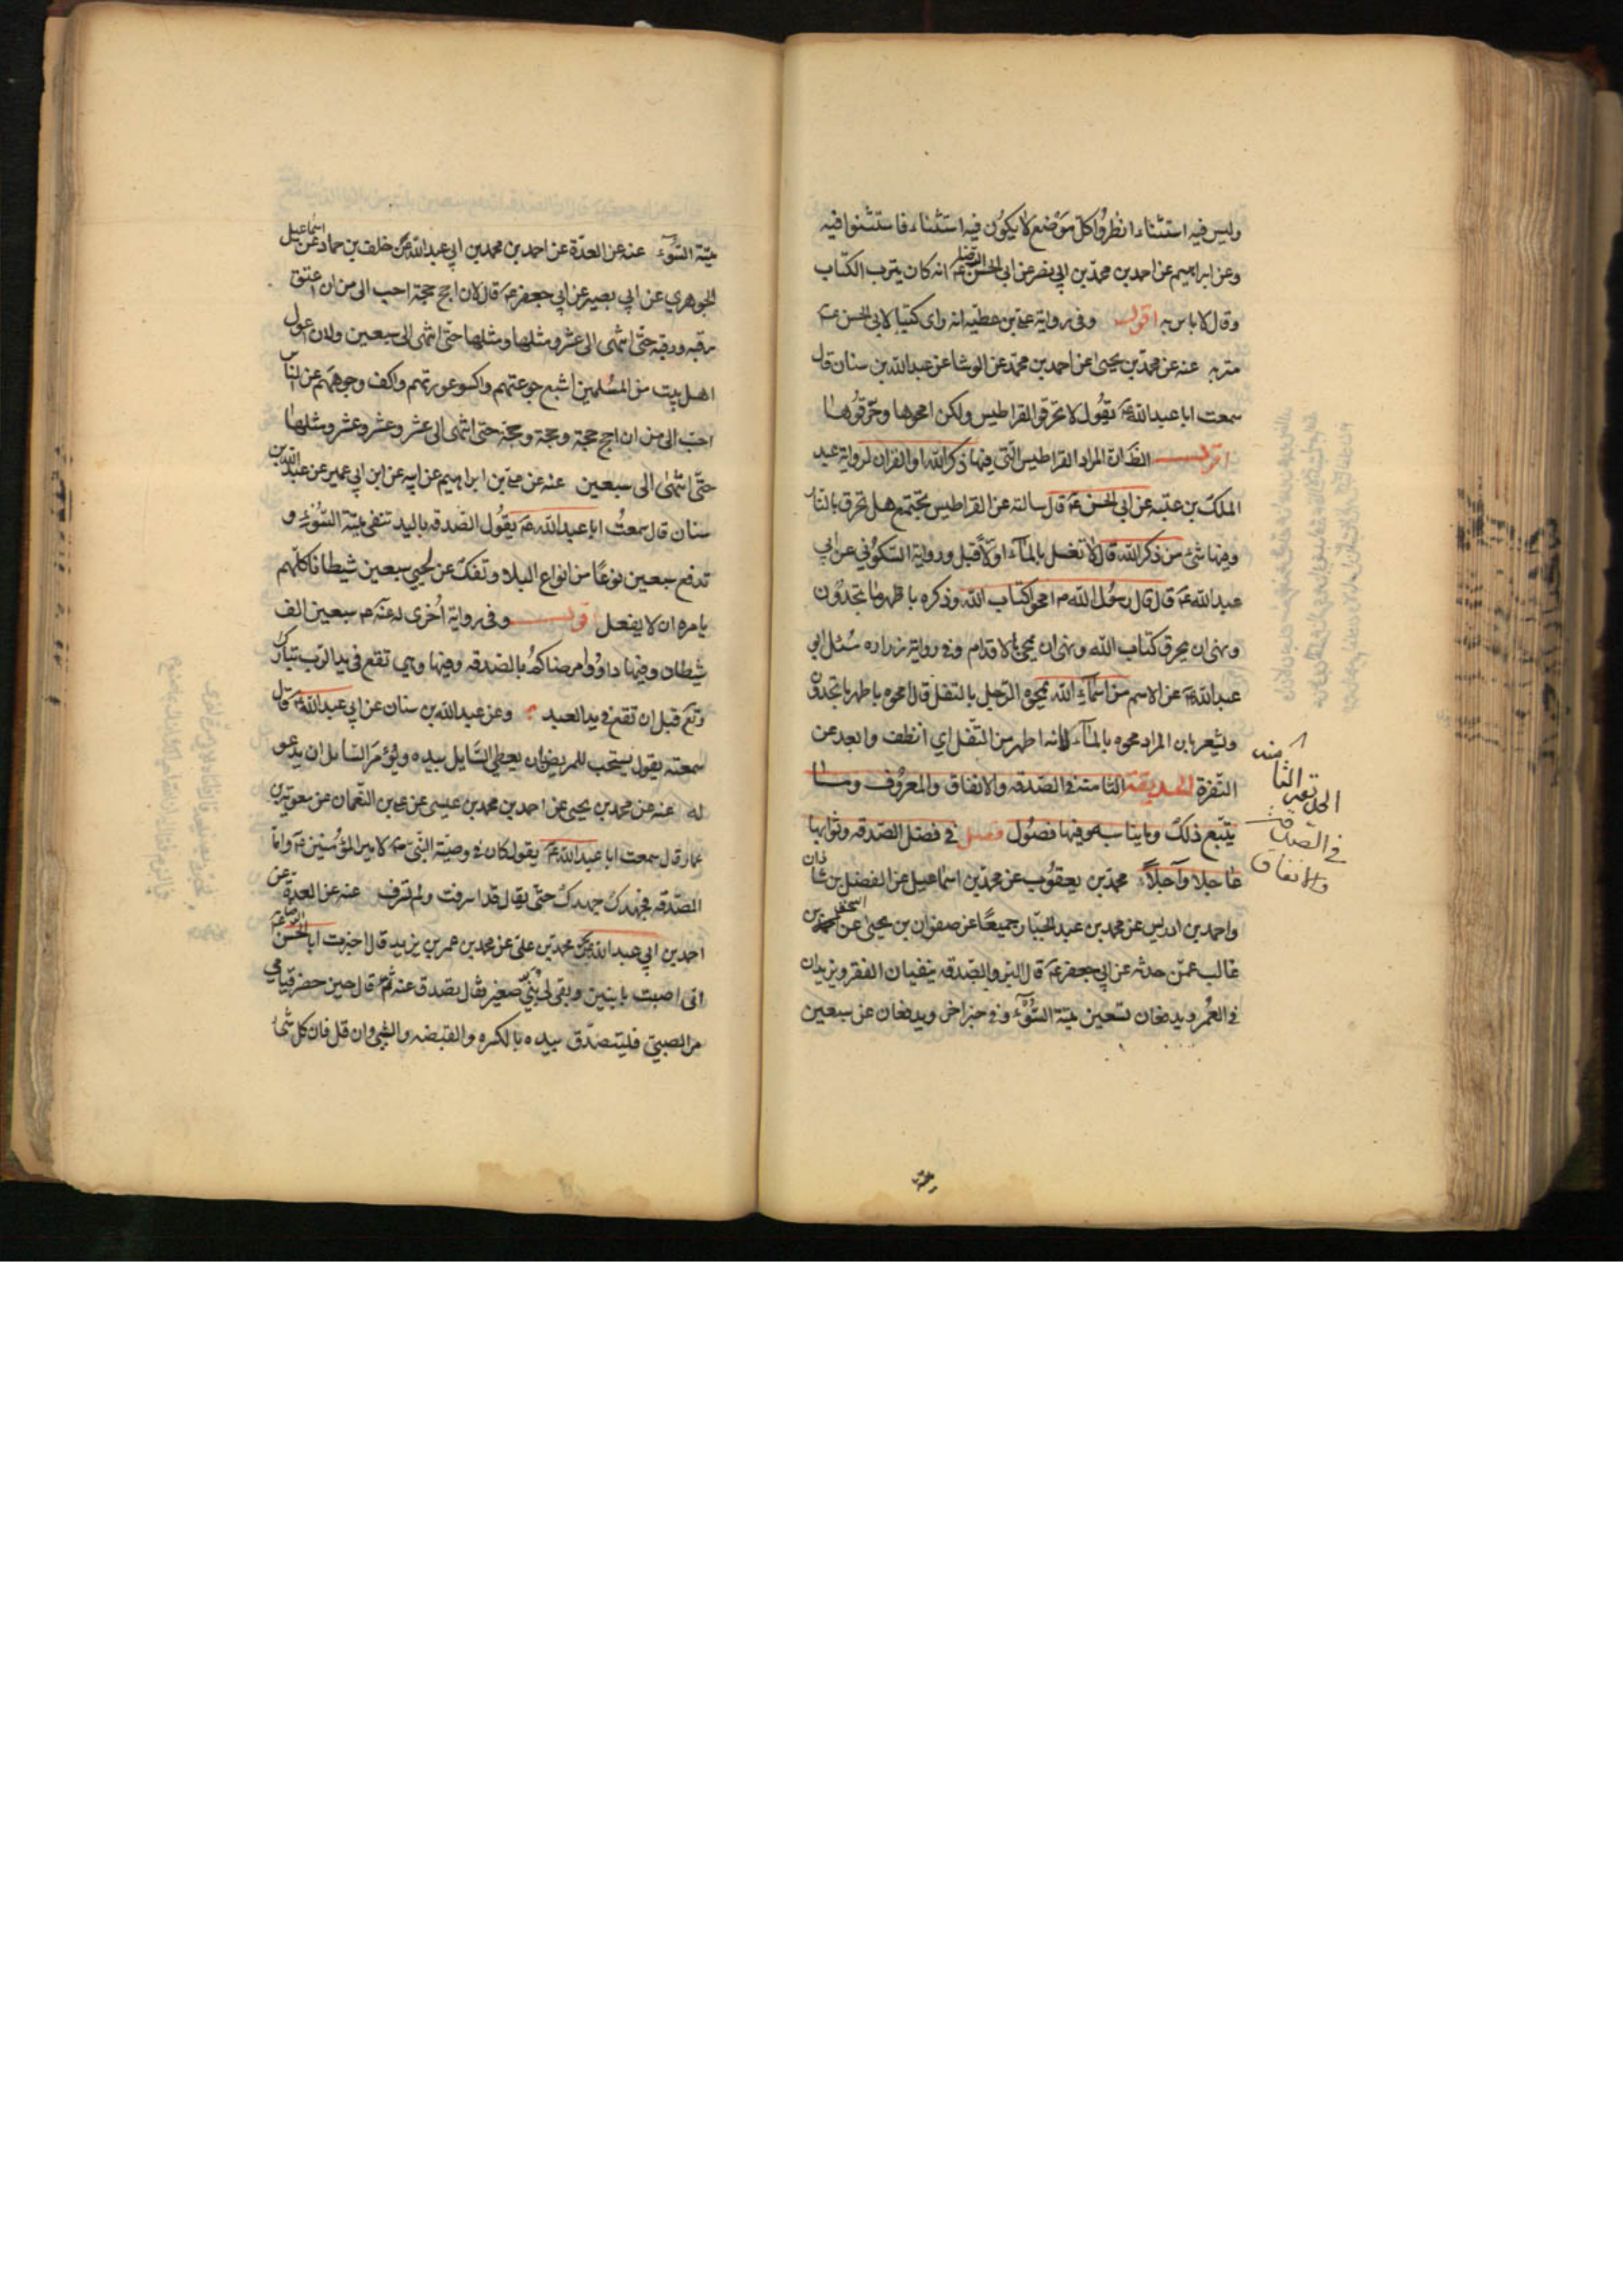 وليس فيه استثناء انظروا كل موضع لا يكون فيه استثناء فاستثنوا فيه
وعن ابراهيم عن احمد بن محمد بن ابي نصر عن ابي الحسن الرضا ع انه كان يترب الكتاب
وقال لا باس به اقول وفي رواية علي بن عطيه انه راى كتبا لابي الحسن ع
متربه عنه عن محمد بن يحيى عن احمد بن محمد عن الوشا عن عبدالله بن سنان قال
سمعت ابا عبدالله ع يقول لا تحرقوا القراطيس ولكن امحوها وخرقوها
اقول الظ ان المراد القراطيس التي فيها ذكر الله او القران لرواية عبد
الملك بن عتبه عن ابي الحسن ع قال سالته عن القراطيس تجتمع هل تحرق بالنار
وفيها شئ من ذكر الله قال لا تغسل بالماء اولا قبل ورواية السكوني عن ابي
عبدالله ع قال قال رسول الله ص امحوا كتاب الله وذكره باطهر ما تجدون
ونهى ان يحرق كتاب الله ونهى ان يمحى بالاقدام وفي رواية زراره سئل ابو
عبدالله ع عن الاسم من اسماء الله يمحوه الرجل بالتفل قال امحوه باطهر ما تجدون
وليشعر بان المراد محوه بالماء لانه اطهر من التفل اي انظف وابعد عن
النفرة الحديقة الثامنة في الصدقه والانفاق والمعروف وما
يتبع ذلك وفيها فصول فصل في فضل الصدقه وثوابها
عاجلا وآجلا محمد بن يعقوب عن محمد بن اسماعيل عن الفضل بن شاذان
واحمد بن ادريس عن محمد بن عبد الجبار جميعا عن صفوان بن يحيى عن اسحق بن
غالب عمن حدثه عن ابي جعفر ع قال البر والصدقه ينفيان الفقر ويزيدان
في العمر ويدفعان تسعين ميتة السوء وفي خبر اخر ويدفعان عن سبعين
الحديقة الثامنه
في الصدقة
والانفاق
ميتة السوء عنه عن العدة عن احمد بن محمد بن ابي عبدالله عن خلف بن حماد عن اسماعيل
الجوهري عن ابي بصير عن ابي جعفر ع قال لان احج حجة احب الى من ان اعتق
رقبه ورقبه حتى انتهى الى عشر ومثلها ومثلها حتى انتهى الى سبعين ولان اعول
اهل بيت من المسلمين اشبع جوعتهم واكسو عورتهم واكف وجوههم عن الناس
احب الى من ان احج حجة وحجة وحجة حتى انتهى الى عشر وعشر وعشر ومثلها
حتى انتهى الى سبعين عنه عن علي بن ابراهيم عن ابيه عن ابن ابي عمير عن عبدالله بن
سنان قال سمعت ابا عبدالله ع يقول الصدقه باليد تنفي ميتة السوء و
تدفع سبعين نوعا من انواع البلاء وتفك عن لحيي سبعين شيطانا كلهم
يامره ان لا يفعل قوله وفي رواية اخرى له عنه ع سبعين الف
شيطان وفيها داووا مرضاكم بالصدقه وفيها وهي تقع في يد الرب تبارك
وتع قبل ان تقع في يد العبد وعن عبدالله بن سنان عن ابي عبدالله ع قال
سمعته يقول يستحب للمريض ان يعطي السايل بيده ويؤمر السائل ان يدعو
له عنه عن محمد بن يحيى عن احمد بن محمد بن عيسى عن علي بن النعمان عن معوية بن
عمار قال سمعت ابا عبدالله ع يقول كان في وصية النبي ص لامير المؤمنين ع واما
الصدقه فجهدك جهدك حتى يقال قد اسرفت ولم تسرف عنه عن العدة عن
احمد بن ابي عبدالله عن محمد بن علي عن محمد بن عمر بن يزيد قال اخبرت ابا الحسن الرضا ع
انى اصبت بابنين وبقى لى بُني صغير فقال تصدق عنه ثم قال حين حضر قيامي
مر الصبي فليتصدق بيده بالكسره والقبضه والشئ وان قل فان كل شئ